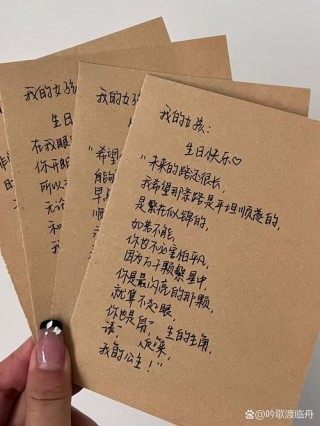 我的女孩
我的女孩
生日
在我眼
你开朗
所以
无论
我
我的女孩
"希望
能够
早
顺
我的女孩:
生日快乐♡
"未来的路还很长,
我希望那条路是平坦顺遂的,
是繁花似锦的,
如若不能,
你也不必害怕平凡,
因为万千颗繁星中,
你是最闪亮的那颗,
就算不起眼,
你也是 一生的主角,
我的公主!"
@吟歌渡临舟